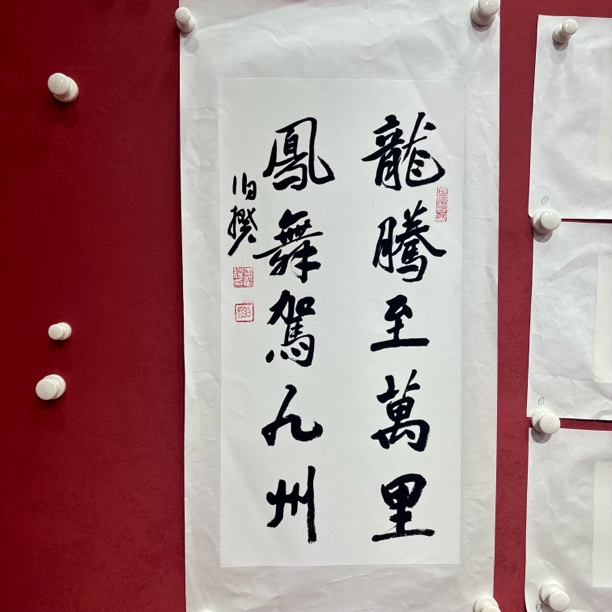 龍騰至萬里
鳳舞駕九州
伯揆